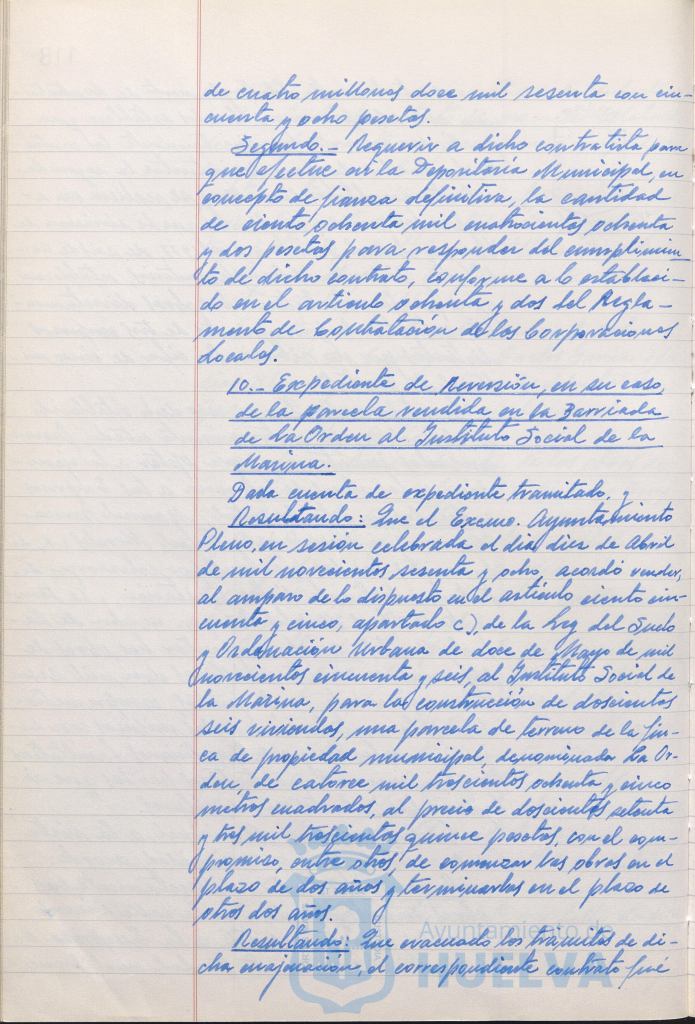 de cuatro millones doce mil sesenta con cin-
cuenta y ocho pesetas.
Segundo.- Requerir a dicho contratista para
que efectue en la Depositaría Municipal, en
concepto de fianza definitiva, la cantidad
de ciento ochenta mil cuatrocientas ochenta
y dos pesetas para responder del cumplimien-
to de dicho contrato, conforme a lo estableci-
do en el articulo ochenta y dos del Regla-
mento de Contratación de las Corporaciones
Locales.
10.- Expediente de Reversión, en su caso,
de la parcela vendida en la Barriada
de La Orden al Instituto Social de la
Marina.
Dada cuenta de expediente tramitado, y
Resultando: Que el Excmo. Ayuntamiento
Pleno, en sesión celebrada el dia diez de Abril
de mil novecientos sesenta y ocho, acordó vender,
al amparo de lo dispuesto en el artículo ciento cin-
cuenta y cinco, apartado c), de la Ley del Suelo
y Ordenación Urbana de doce de Mayo de mil
novecientos cincuenta y seis, al Instituto Social de
la Marina, para la construcción de doscientas
seis viviendas, una parcela de terreno de la fin-
ca de propiedad municipal, denominada La Or-
den, de catorce mil trescientos ochenta y cinco
metros cuadrados, al precio de doscientas setenta
y tres mil trescientas quince pesetas, con el com-
promiso, entre otros, de comenzar las obras en el
plazo de dos años y terminarlas en el plazo de
otros dos años.
Resultando: Que evacuado los tramites de di-
cha enajenación, el correspondiente contrato fué
Ayuntamiento de
HUELVA